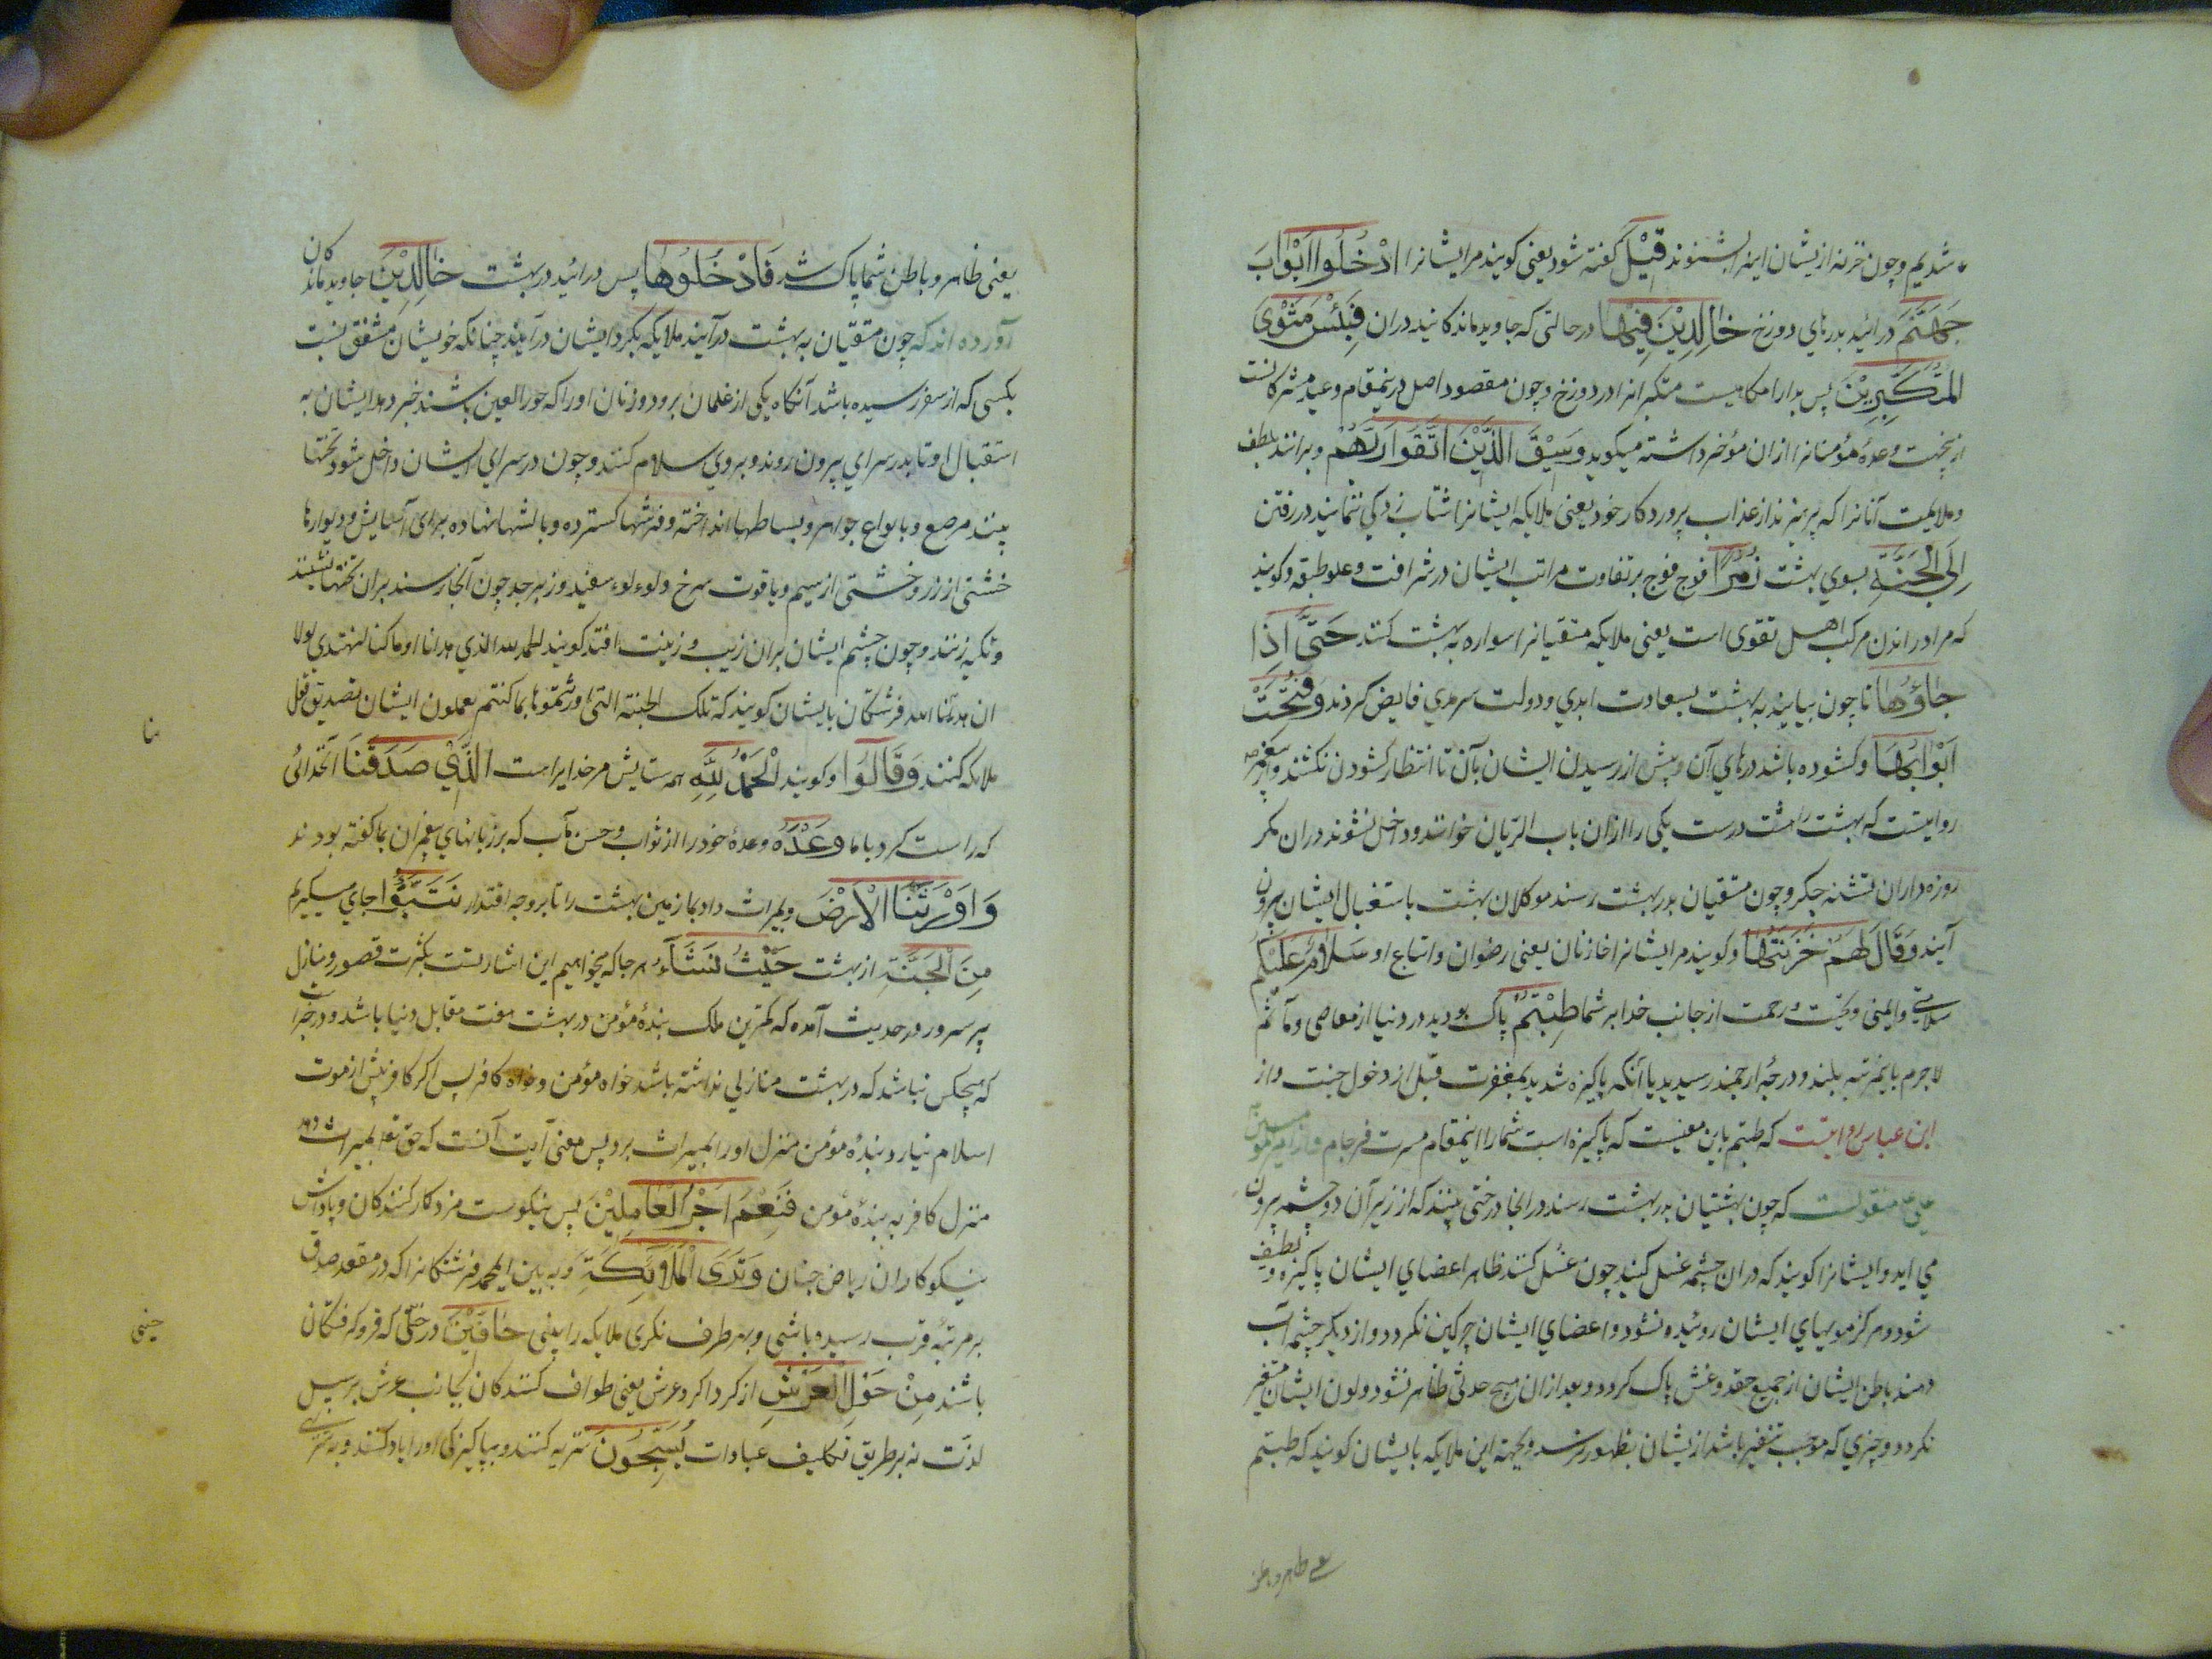 شدیم و چون خزنه از یشان این را بشنوند قِیْلَ گفته شود یعنی کویند مر ایشانرا ادْخُلُوا اَبْوابَ
جَهَنَّمَ درائید بدرهای دوزخ خالِدِیْنَ فِیْها در حالتی که جاوید ماندکانید دران فَبِئْسَ مَثْوَی
المُتَکَبِّرِیْنَ پس بد ارامکاهیست متکبرانرا در دوزخ و چون مقصود اصل درینمقام وعید مشرکانست
ازینجهت وعدهٔ مؤمنانرا ازان مؤخر داشته میکوید وَسِیْقَ الَّذِیْنَ اتَّقَوْا رَبَّهُمْ و برانند بلطف
و ملایمت آنانرا که پرهیزند از عذاب پروردکار خود یعنی ملایکه ایشانرا شتاب زدکی نمایند در رفتن
اِلَی الْجَنَّةِ بسوی بهشت زُمَرًا فوج فوج بر تفاوت مراتب ایشان در شرافت و علو طبقه و کویند
که مراد راندن مرکب اهل تقوی است یعنی ملایکه متقیانرا سواره به بهشت کنند حَتّٰی اِذا
جاؤُها تا چون بیایند به بهشت بسعادت ابدی و دولت سرمدی فایض کردند وَفُتِحَتْ
اَبْوابُها و کشوده باشد درهای آن و پیش از رسیدن ایشان بآن تا انتظار کشودن نکشند و از پیغمبر
روایتست که بهشت را هشت درست یکی را ازان باب الریان خوانند و داخل نشوند دران مکر
روزه داران تشنه جکر و چون متقیان بدر بهشت رسند موکلان بهشت باستقبال ایشان بیرون
آیند وَقالَ لَهُمْ خَزَنَتُها و کویند مر ایشانرا خازنان یعنی رضوان و اتباع او سَلامٌ عَلَیْکُمْ
سلامتی و ایمنی و تحیت و رحمت از جانب خدا بر شما طِبْتُمْ پاک بودید در دنیا از معاصی و مآثم
لاجرم باینمرتبه بلند و درجهٔ ارجمند رسیدید یا آنکه پاکیزه شدید بمغفرت قبل از دخول جنت و از
ابن عباس روایتست که طبتم باین معنیست که پاکیزه است شما را اینمقام مسرت فرجام و از امیر مؤمنین
علی منقولست که چون بهشتیان بدر بهشت رسند در انجا درختی بینند که از زیر آن دو چشمه بیرون
می اید و ایشانرا کویند که دران چشمه غسل کنید چون غسل کنند ظاهر اعضای ایشان پاکیزه و لطیف
شود و هرکز مویهای ایشان رولیده نشود و اعضای ایشان چرکین نکردد و از دیکر چشمه آب
دهند باطن ایشان از جمیع حقد و غش پاک کردد و بعد ازان هیچ حدثی ظاهر نشود و لون ایشان متغیر
نکردد و چیزی که موجب تنفیر باشد از یشان بظهور نرسد و بجهة این ملایکه با یشان کویند که طبتم
یعنی ظاهر و باطن
یعنی ظاهر و باطن شما پاک شد فَادْخُلُوها پس درائید در بهشت خالِدِیْنَ جاوید ماندکان
آورده اند که چون متقیان به بهشت درآیند ملایکه بکرد ایشان درآیند چنانکه خویشان مشفق نسبت
بکسی که از سفر رسیده باشد آنکاه یکی از غلمان برود و زنان او را که حور العین باشند خبر دهد ایشان به
استقبال او تا بدر سرای بیرون روند و بروی سلام کنند و چون در سرای ایشان داخل شود تختها
بینند مرصع و بانواع جواهر و بساطها انداخته و فرشها کسترده و بالشها نهاده برای آسایش و دیوارها
خشتی از زر و خشتی از سیم و یاقوت سرخ و لوءلوء سفید و زبرجد چون آنجا رسند بران تختها نشینند
و تکیه زنند و چون چشم ایشان بران زیب و زینت افتد کویند الحمد لله الذی هدانا لهذا و ما کنا لنهتدی لولا
ان هدینا الله فرشتکان بایشان کویند که تلک الجنة التی اورثتموها بما کنتم تعملون ایشان تصدیق قول
ملائکه کنند وَقالُوا و کویند اَلْحَمْدُ لِلّٰهِ همه ستایش مر خدایراست الَّذِیْ صَدَقَنا آنخدائی
که راست کرد با ما وَعْدَهُ وعدهٔ خود را از ثواب و حسن مآب که بر زبانهای پیغمبران بما کفته بودند
وَاَوْرَثَنَا الْاَرْضَ و بمیراث داد بما زمین بهشت را تا بر وجه اقتدار نَتَبَوَّؤُا جای میکیریم
مِنَ الْجَنَّةِ از بهشت حَیْثُ نَشَآءُ هر جا که میخواهیم این اشارتست بکثرت قصور و منازل
پر سرور در حدیث آمده که کمترین ملک بندهٔ مؤمن در بهشت هفت مقابل دنیا باشد و در خبر است
که هیچکس نباشد که در بهشت منازلی نداشته باشد خواه مؤمن و خواه کافر پس اکر کافر پیش از موت
اسلام نیارد بندهٔ مؤمن منزل او را بمیراث برد پس معنی آیت آنست که حق تعا بمیراث داد
منزل کافر به بندهٔ مؤمن فَنِعْمَ اَجْرُ الْعامِلِیْنَ پس نیکوست مزد کارکنندکان و پاداش
نیکوکاران ریاض جنان وَتَرَی الْمَلاَئِکَةَ و به بین ای محمد فرشتکانرا که در مقعد صدق
بر مرتبهٔ قرب رسیده باشی و بهر طرف نکری ملایکه را بینی حافِّیْنَ در حالتی که فرو کرفتکان
باشند مِنْ حَوْلِ الْعَرْشِ از کرداکرد عرش یعنی طواف کنندکان بجانب عرش بر سبیل
لذت نه بر طریق تکلیف عبادات یُسَبِّحُوْنَ تنزیه کنند و بپاکیزکی او را یاد کنند و به